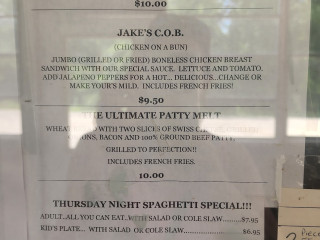 $10.00
JAKE'S C.O.B.
(CHICKEN ON A BUN)
JUMBO (GRILLED OR FRIED) BONELESS CHICKEN BREAST
SANDWICH WITH OUR SPECIAL SAUCE. LETTUCE AND TOMATO.
ADD JALAPENO PEPPERS FOR A HOT... DELICIOUS...CHANGE OR
MAKE YOUR'S MILD. INCLUDES FRENCH FRIES!
$9.50
THE ULTIMATE PATTY MELT
WITH TWO SLICES OF SWISS
BACON AND 100% GROUND BEEF PATTY.
GRILLED TO PERFECTION!!
INCLUDES FRENCH FRIES.
10.00
THURSDAY NIGHT SPAGHETTI SPECIAL!!!
ADULT..ALL YOU CAN EAT..WITH SALAD OR COLE SLAW.........$7.95
KID'S PLATE... WITH SALAD OR COLE SLAW.........................$6.95